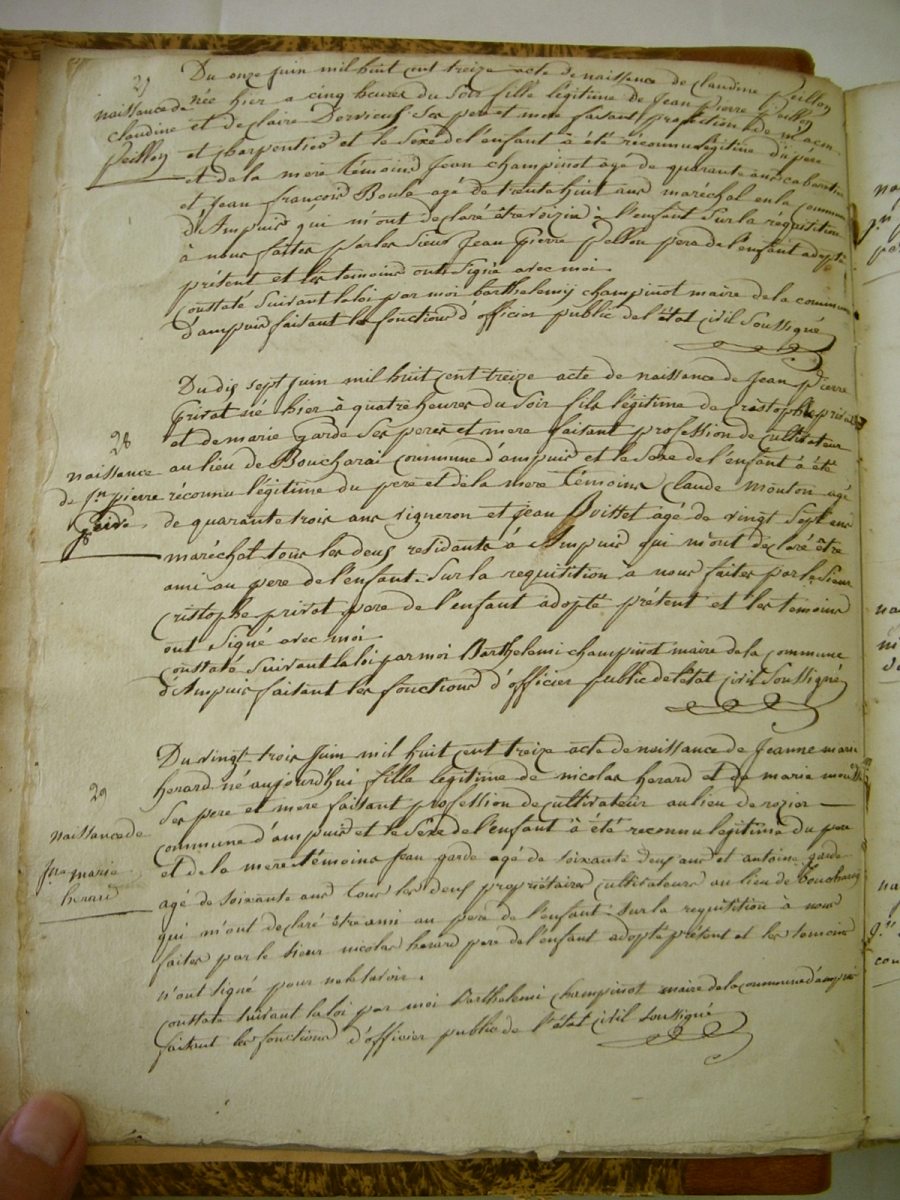 27
naissance de
claudine
peillon
Du onze juin mil huit cent treize acte de naissance de claudine peillon
née hier a cinq heures du soir fille légitime de Jean pierre peillon
et de claire Dervieux ses pere et mere faisant profession de
et charpentier et le sexe de l'enfant à été reconnu légitime du pere
et de la mere témoins Jean champinot agé de quarante ans cabaretier
et jean françois Boula agé de trente huit ans maréchal en la commune
d'Ampuis qui m'ont déclaré être voizin à l'enfant sur la réquisition
à nous faites par les sieur Jean Pierre pellon pere de l'enfant adopté
présent et les temoins ont signé avec moi.
constaté suivant la loi par moi barthelemij champinot maire de la commune
d'ampuis faisant les fonctions d'officier public de l'état civil soussigné
28
naissance
de jn pierre
Du dix sept juin mil huit cent treize acte de naissance de Jean pierre
privat né hier à quatre heures du soir fils légitime de cristophe privat
et de marie garde ses peres et mere faisant profession de cultivateur
au lieu de Boucharai commune d'ampuis et le sexe de l'enfant à été
réconnu légitime du pere et de la mere témoins Claude mouton agé
de quarante trois ans vigneron et jean Boittet agé de vingt sept ans
maréchal tous les deux residants à Ampuis qui m'ont déclaré être
ami au pere de l'enfant. sur la requisition a nous faites par le sieur
cristophe privat pere de l'enfant adopté présent et les temoins
ont signé avec moi
constaté suivant la loi par moi Barthelemi champinot maire de la commune
d'Ampuis faisant les fonctions d'officier public de l'état civil soussigné
29
naissance de
jne marie
herard
Du vingt trois juin mil huit cent treize acte de naissance de Jeanne marie
herard né aujourd'hui fille légitime de nicolas herard et de marie
ses pere et mere faisant profession de cultivateur au lieu de rozier
commune d'ampuis et le sexe de l'enfant à été reconnu legitime du pere
et de la mere témoins Jean garde agé de soixante deux ans et antoine garde
agé de soixante ans tous les deux propriétaires cultivateurs au lieu de Boucharey
qui m'ont declaré être ami au pere de l'enfant sur la requisition à nous
faites par le sieur nicolas herard pere de l'enfant adopté présent et les temoins
n'ont signé pour ne le savoir.
constaté suivant la loi par moi Barthelemi champinot maire de la commune d'ampuis
faisant les fonctions d'officier public de l'état civil soussigné